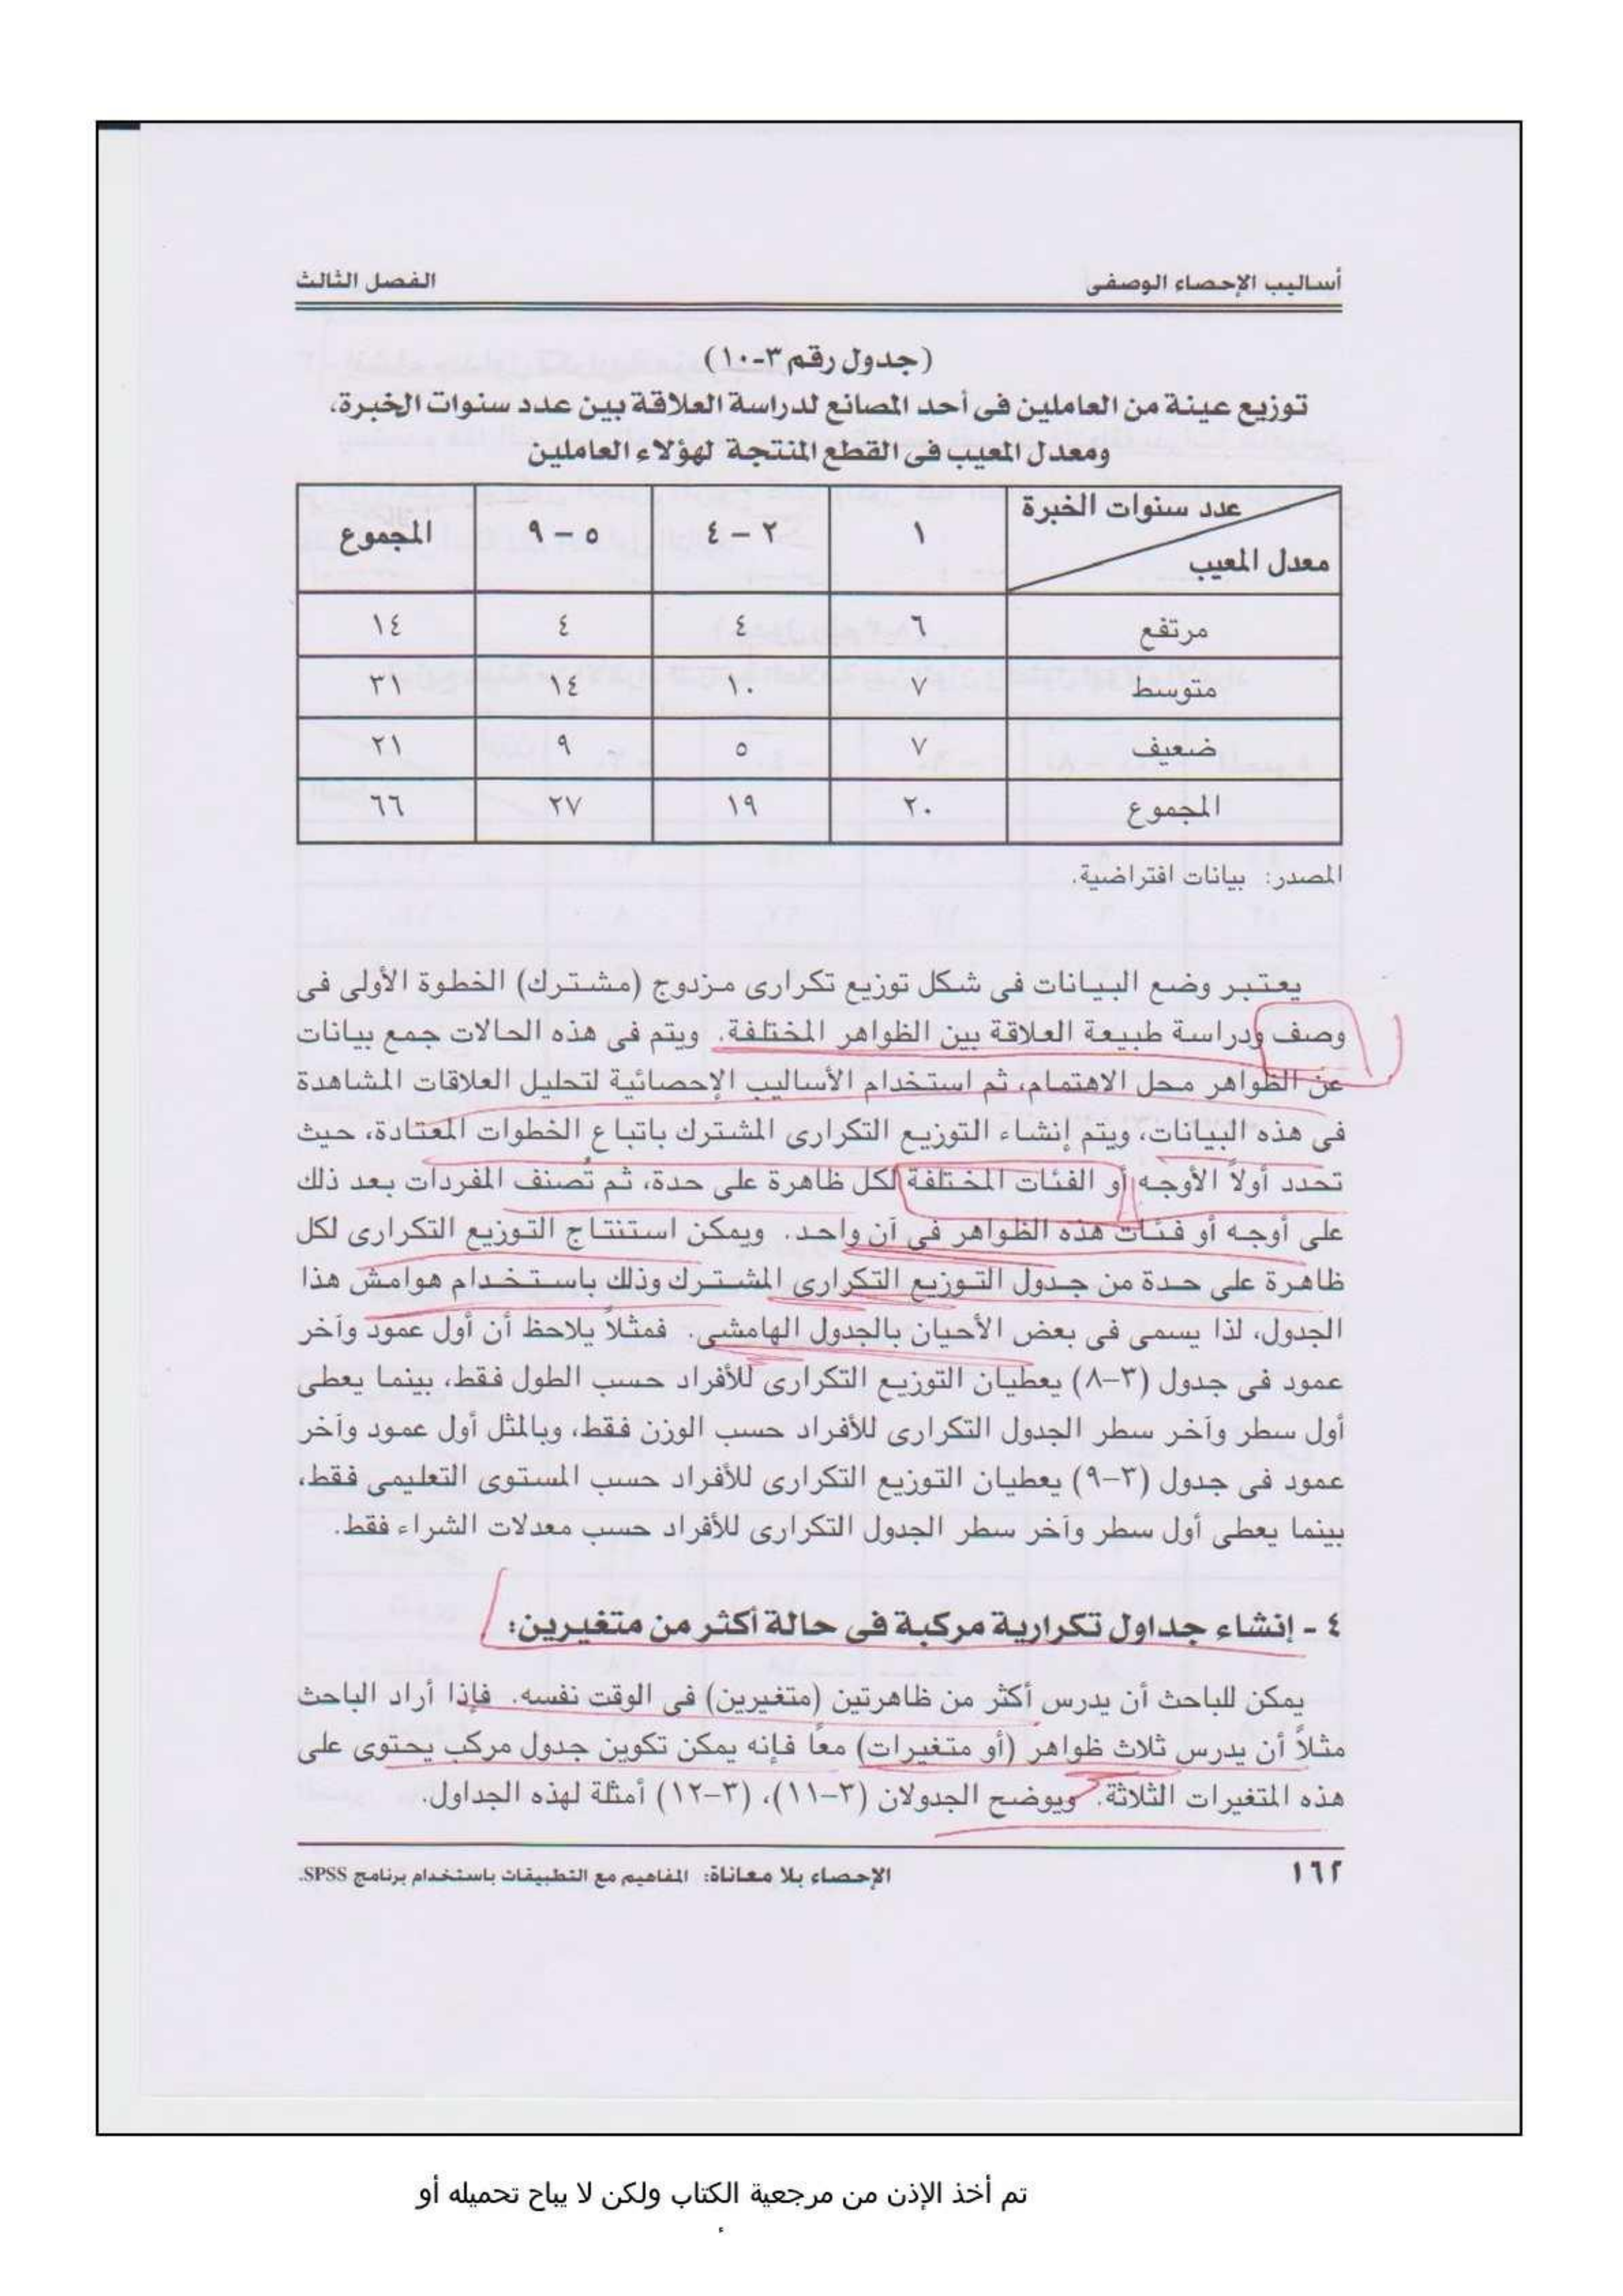 أساليب الإحصاء الوصفى الفصل الثالث
(جدول رقم ٣-١٠)
توزيع عينة من العاملين فى أحد المصانع لدراسة العلاقة بين عدد سنوات الخبرة،
ومعدل المعيب فى القطع المنتجة لهؤلاء العاملين
عدد سنوات الخبرة
معدل المعيب ١ ٢ – ٤ ٥ – ٩ المجموع
مرتفع ٦ ٤ ٤ ١٤
متوسط ٧ ١٠ ١٤ ٣١
ضعيف ٧ ٥ ٩ ٢١
المجموع ٢٠ ١٩ ٢٧ ٦٦
المصدر: بيانات افتراضية.
يعتبر وضع البيانات فى شكل توزيع تكرارى مزدوج (مشترك) الخطوة الأولى فى
وصف ودراسة طبيعة العلاقة بين الظواهر المختلفة. ويتم فى هذه الحالات جمع بيانات
عن الظواهر محل الاهتمام، ثم استخدام الأساليب الإحصائية لتحليل العلاقات المشاهدة
فى هذه البيانات، ويتم إنشاء التوزيع التكرارى المشترك باتباع الخطوات المعتادة، حيث
تحدد أولاً الأوجه أو الفئات المختلفة لكل ظاهرة على حدة، ثم تُصنف المفردات بعد ذلك
على أوجه أو فئات هذه الظواهر فى آن واحد. ويمكن استنتاج التوزيع التكرارى لكل
ظاهرة على حدة من جدول التوزيع التكرارى المشترك وذلك باستخدام هوامش هذا
الجدول، لذا يسمى فى بعض الأحيان بالجدول الهامشى. فمثلاً يلاحظ أن أول عمود وآخر
عمود فى جدول (٣–٨) يعطيان التوزيع التكرارى للأفراد حسب الطول فقط، بينما يعطى
أول سطر وآخر سطر الجدول التكرارى للأفراد حسب الوزن فقط، وبالمثل أول عمود وآخر
عمود فى جدول (٣–٩) يعطيان التوزيع التكرارى للأفراد حسب المستوى التعليمى فقط،
بينما يعطى أول سطر وآخر سطر الجدول التكرارى للأفراد حسب معدلات الشراء فقط.
٤ - إنشاء جداول تكرارية مركبة فى حالة أكثر من متغيرين:
يمكن للباحث أن يدرس أكثر من ظاهرتين (متغيرين) فى الوقت نفسه. فإذا أراد الباحث
مثلاً أن يدرس ثلاث ظواهر (أو متغيرات) معًا فإنه يمكن تكوين جدول مركب يحتوى على
هذه المتغيرات الثلاثة. ويوضح الجدولان (٣–١١)، (٣–١٢) أمثلة لهذه الجداول.
١٦٢ الإحصاء بلا معاناة: المفاهيم مع التطبيقات باستخدام برنامج SPSS.
تم أخذ الإذن من مرجعية الكتاب ولكن لا يباح تحميله أو